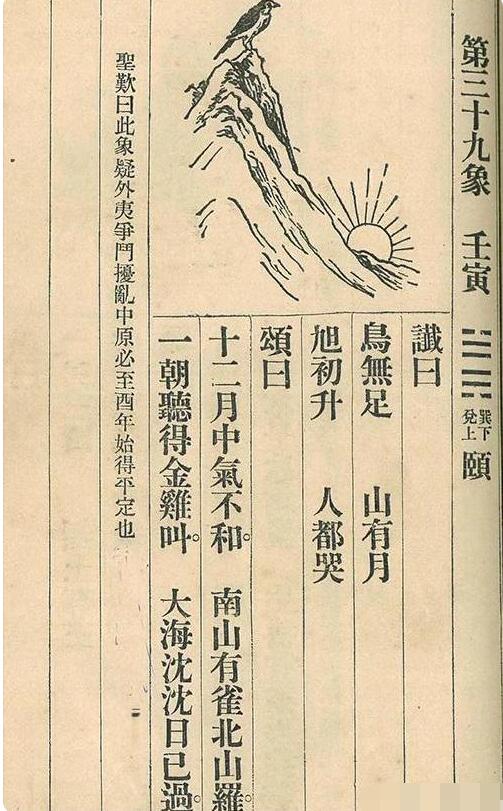 第三十九象 壬寅 巽下兌上 頤
讖曰
鳥無足 山有月
旭初升 人都哭
頌曰
十二月中氣不和。 南山有雀北山羅
一朝聽得金雞叫。 大海沈沈日已過。
聖歎曰此象疑外夷爭鬥擾亂中原必至酉年始得平定也